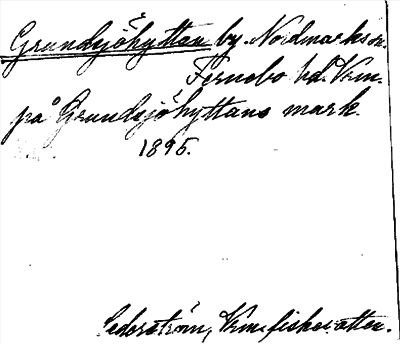 Grundsjöhyttan by. Nordmarks sn.
Fernebo hd. Vrm.
på Grundsjöhyttans mark.
1895.
Cederström, Vrm. fiskevatten.